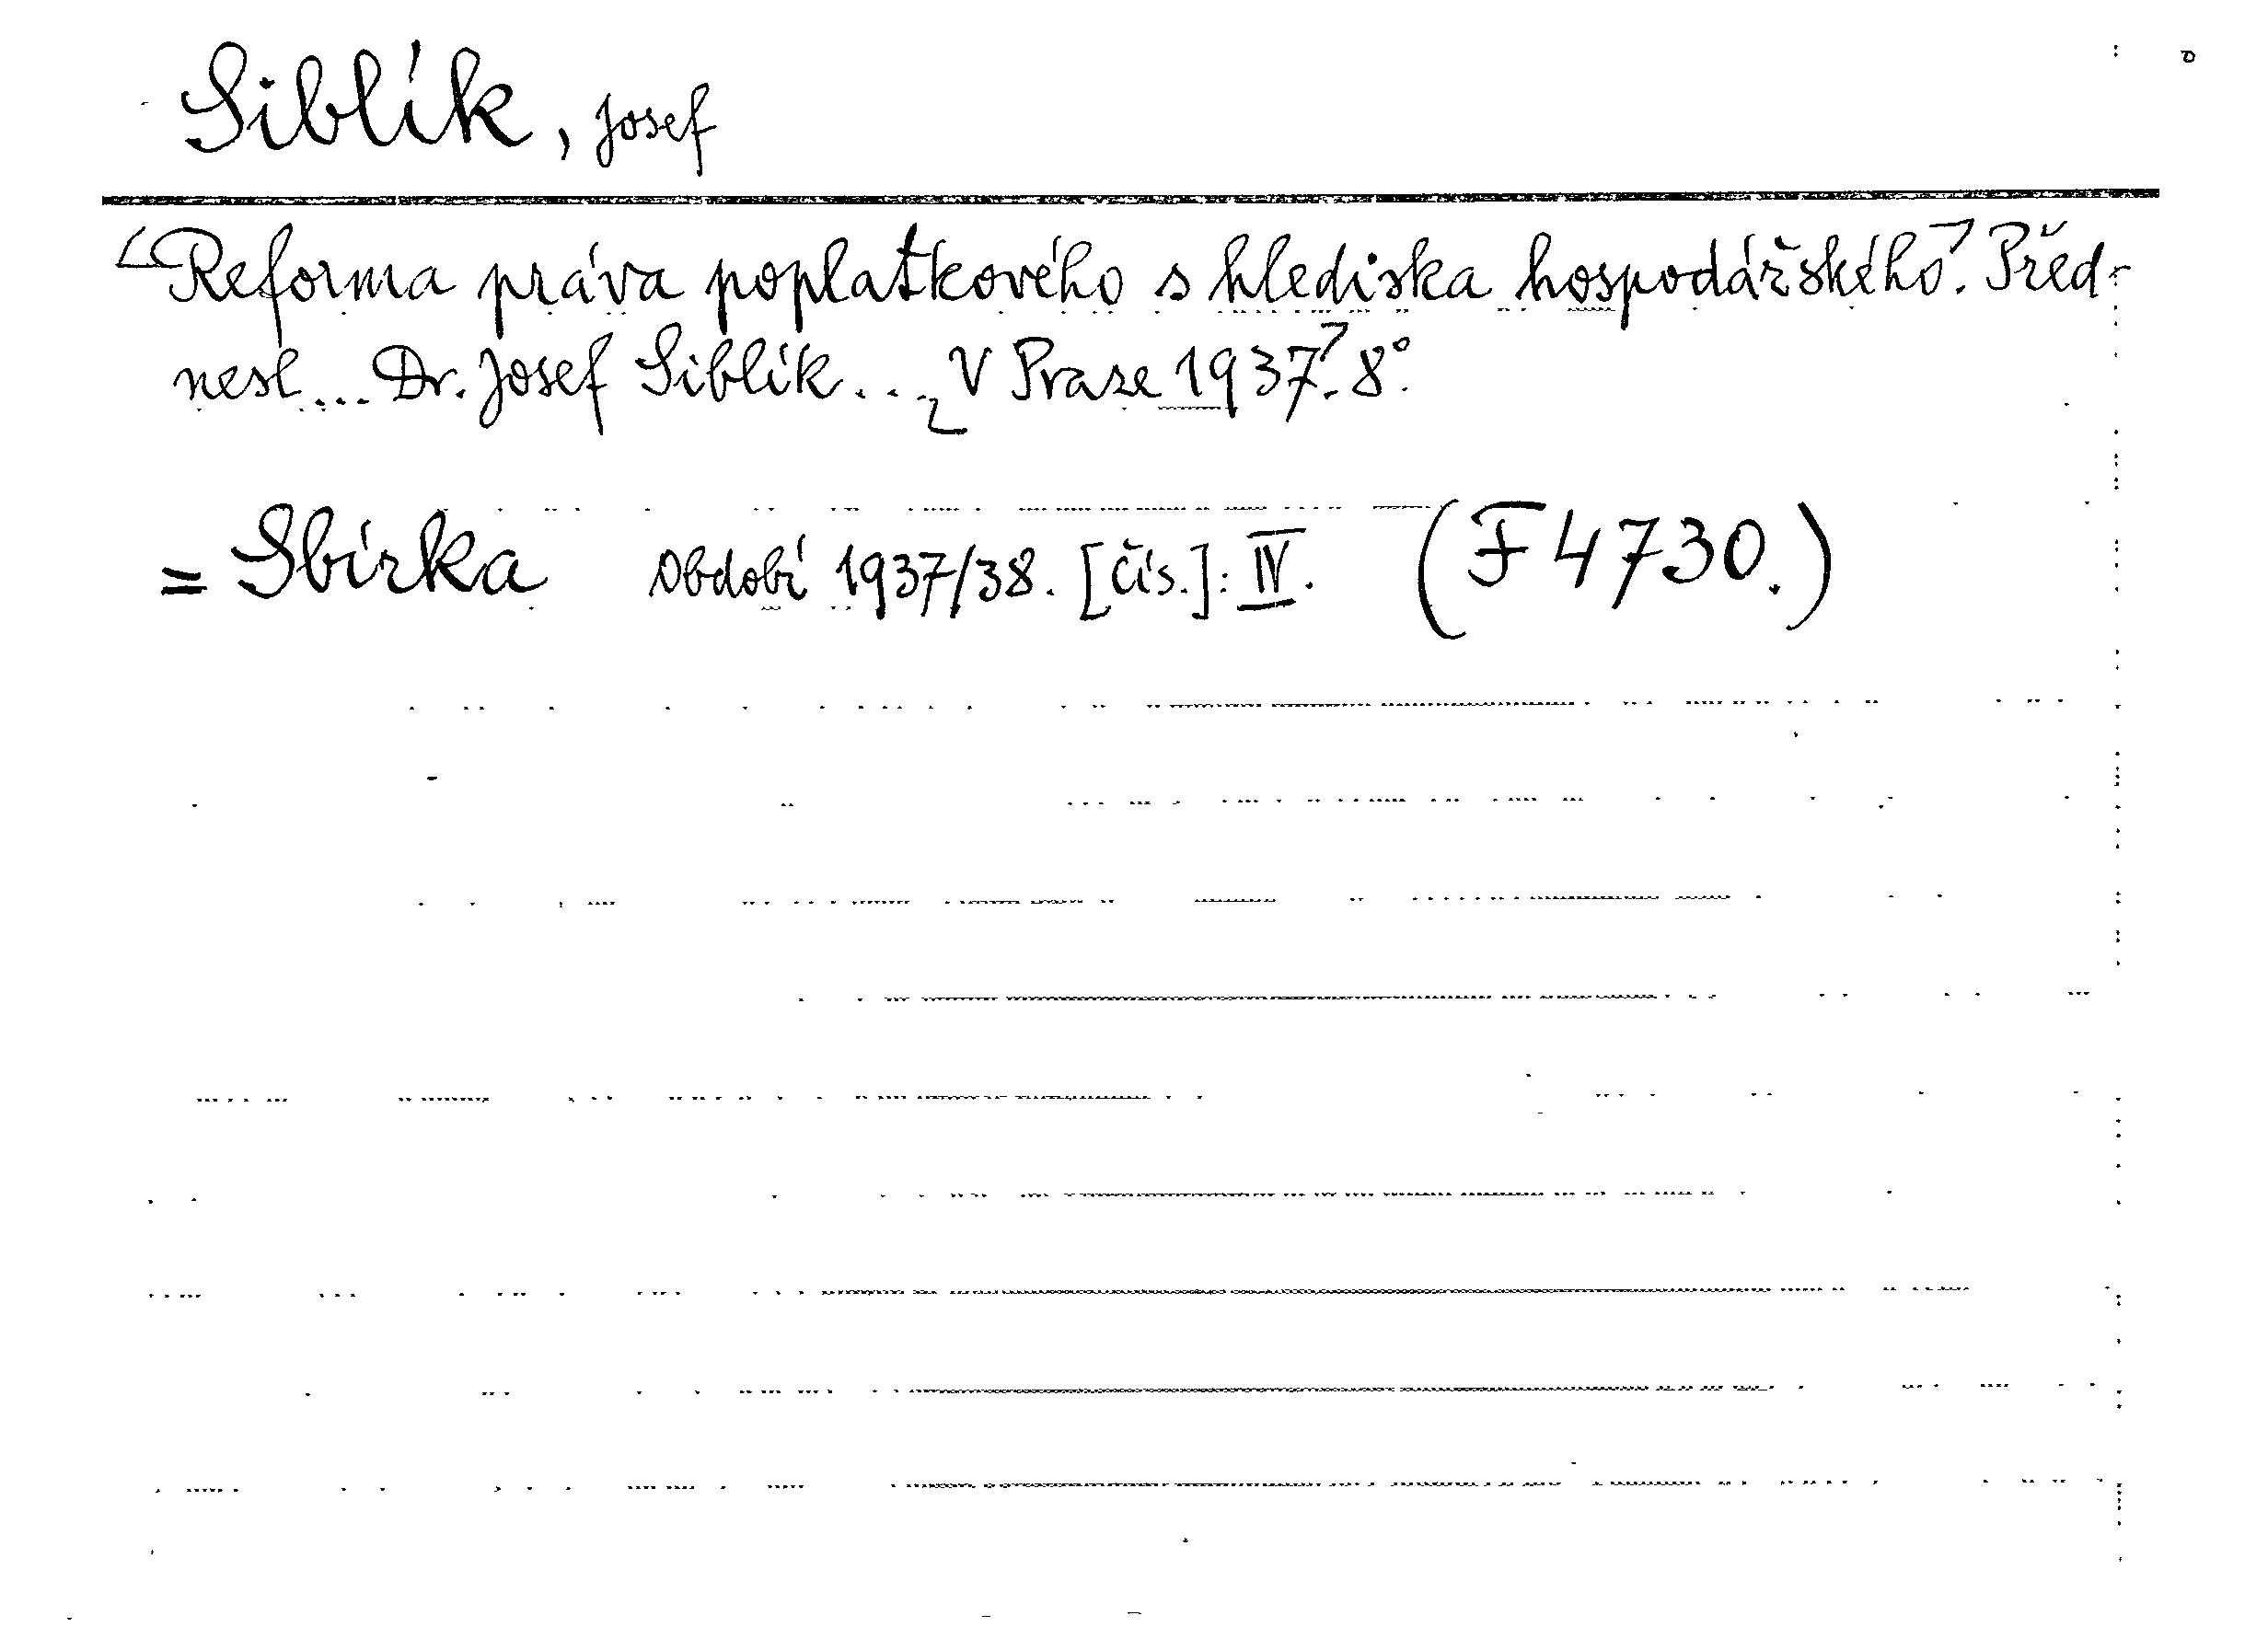 Siblík, Josef
[Reforma práva poplatkového s hlediska hospodářského]. Před-
nesl... Dr. Josef Siblík... [V Praze 1937]. 8°.
= Sbírka Období 1937/38. [Čís.]: IV. (F 4730.)